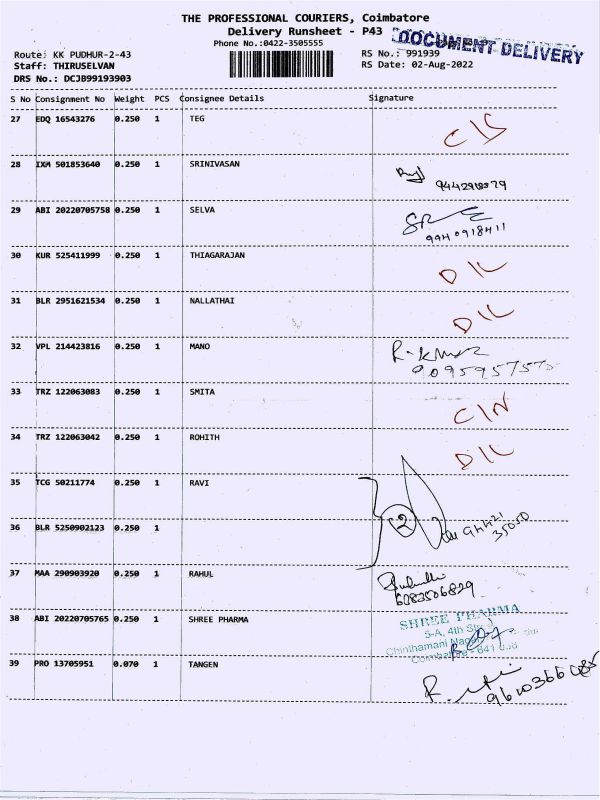 THE PROFESSIONAL COURIERS, Coimbatore
Delivery Runsheet - P43
DOCUMENT DELIVERY
Phone No.:0422-3505555
Route: KK PUDHUR-2-43
RS No.: 991939
Staff: THIRUSELVAN
RS Date: 02-Aug-2022
DRS No.: DCJB99193903
S No Consignment No Weight PCS Consignee Details Signature
27 EDQ 16543276 0.250 1 TEG
28 IXM 501853640 0.250 1 SRINIVASAN
29 ABI 20220705758 0.250 1 SELVA
9940918411
30 KUR 525411999 0.250 1 THIAGARAJAN D/L
31 BLR 2951621534 0.250 1 NALLATHAI D/L
32 VPL 214423816 0.250 1 MANO R-kumar
33 TRZ 122063083 0.250 1 SMITA C/N
34 TRZ 122063042 0.250 1 ROHITH D/L
35 TCG 50211774 0.250 1 RAVI
2
36 BLR 5250902123 0.250 1
37 MAA 290903920 0.250 1 RAHUL
38 ABI 20220705765 0.250 1 SHREE PHARMA
SHREE PHARMA
5-A, 4th
Chinthamani
Coimbatore - 641
39 PRO 13705951 0.070 1 TANGEN